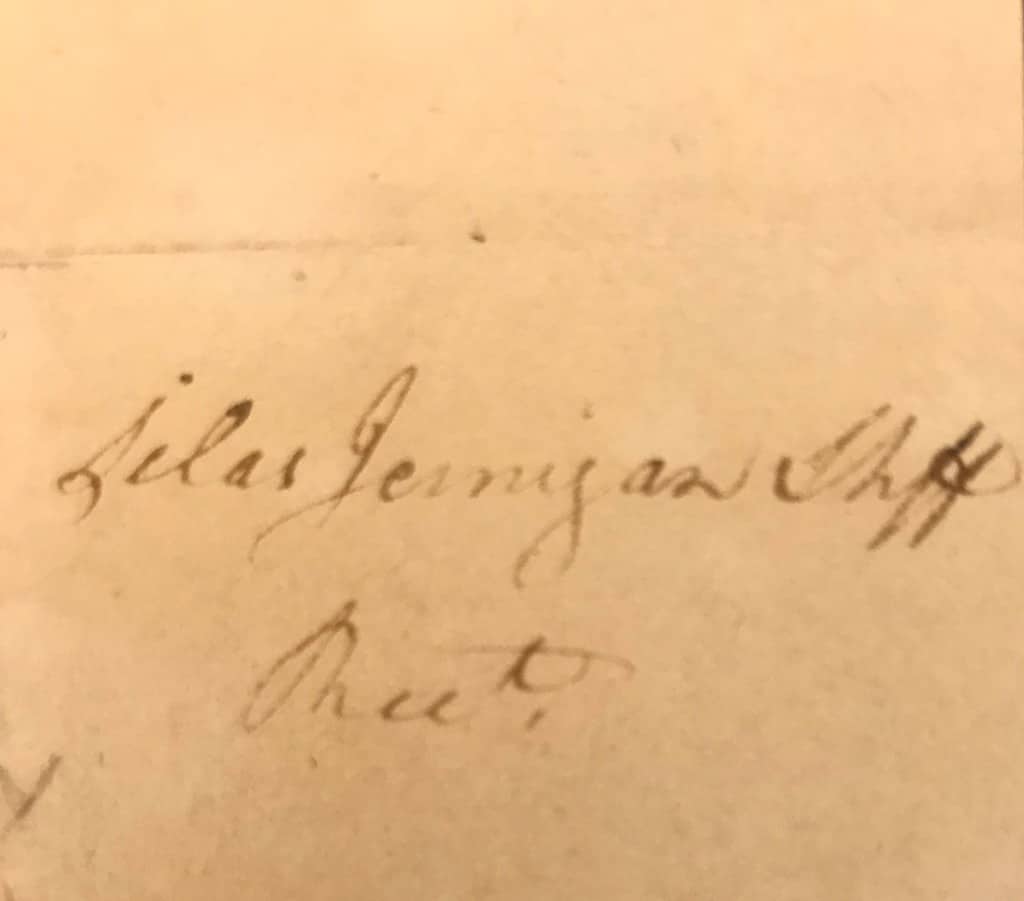 Silas Jernigan Shff
Rect.